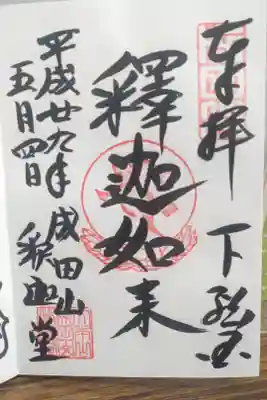 奉拝 下総国
釋迦如来
平成廿九年 成田山
五月四日 釈迦堂